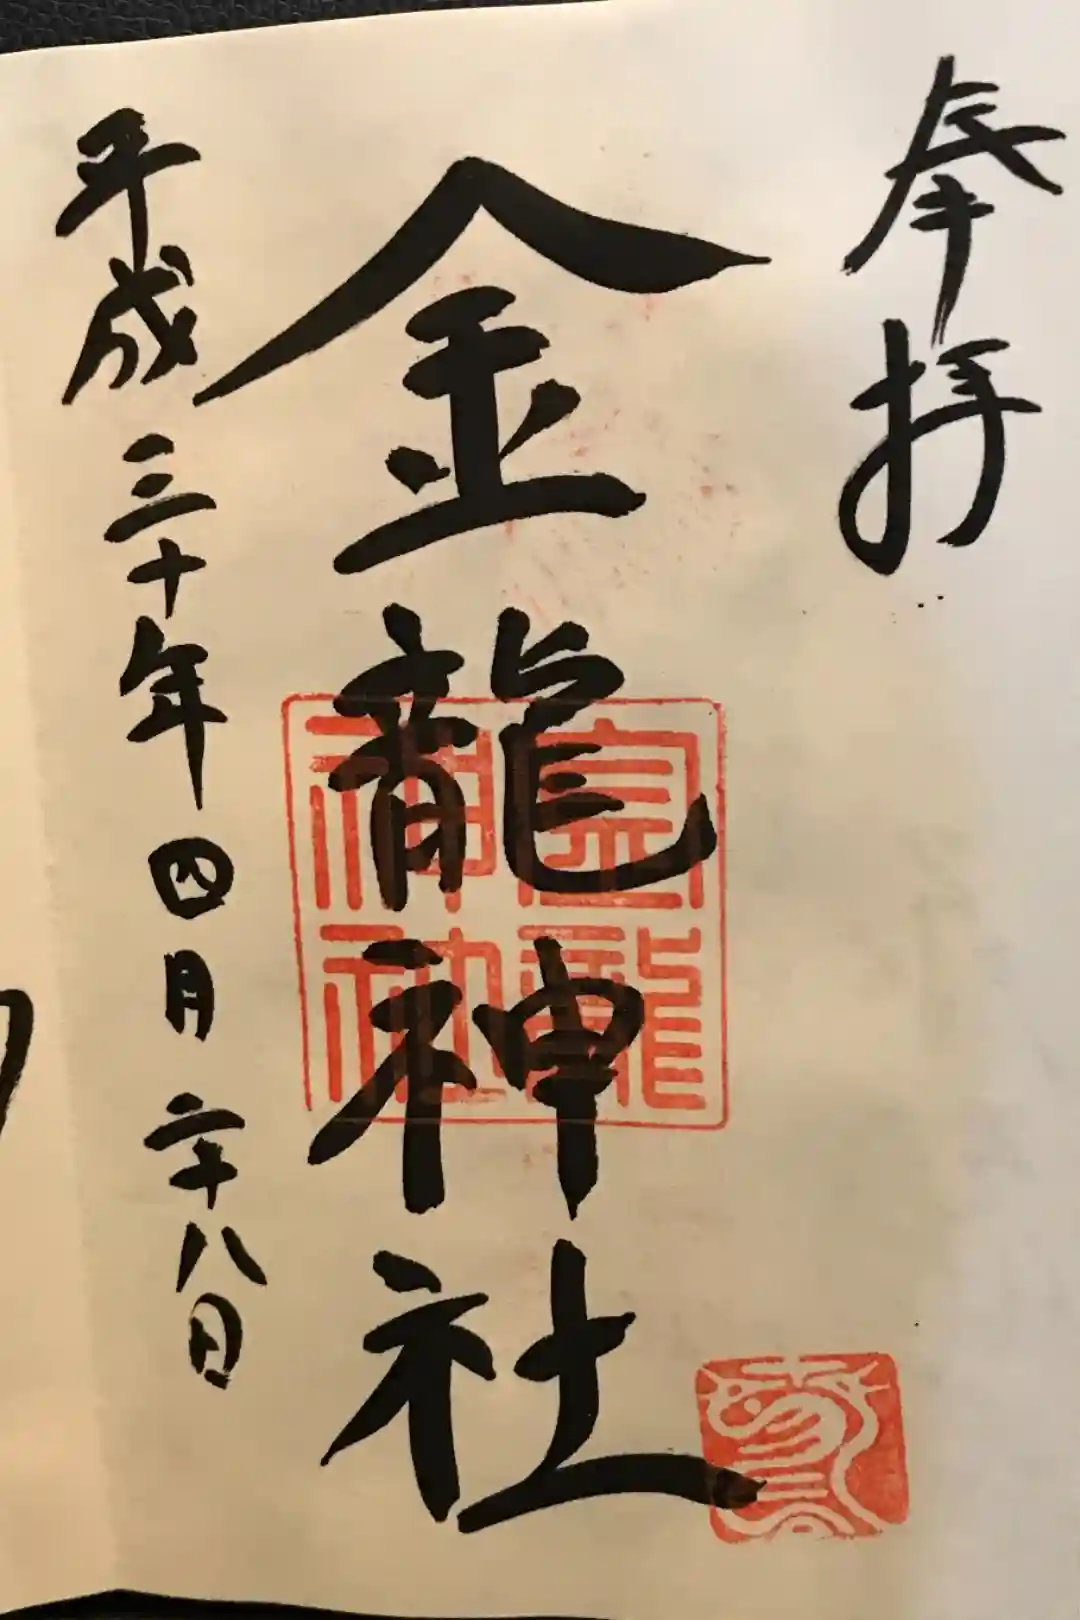 奉拝
金龍神社
金龍
神社
平成三十年四月二十八日